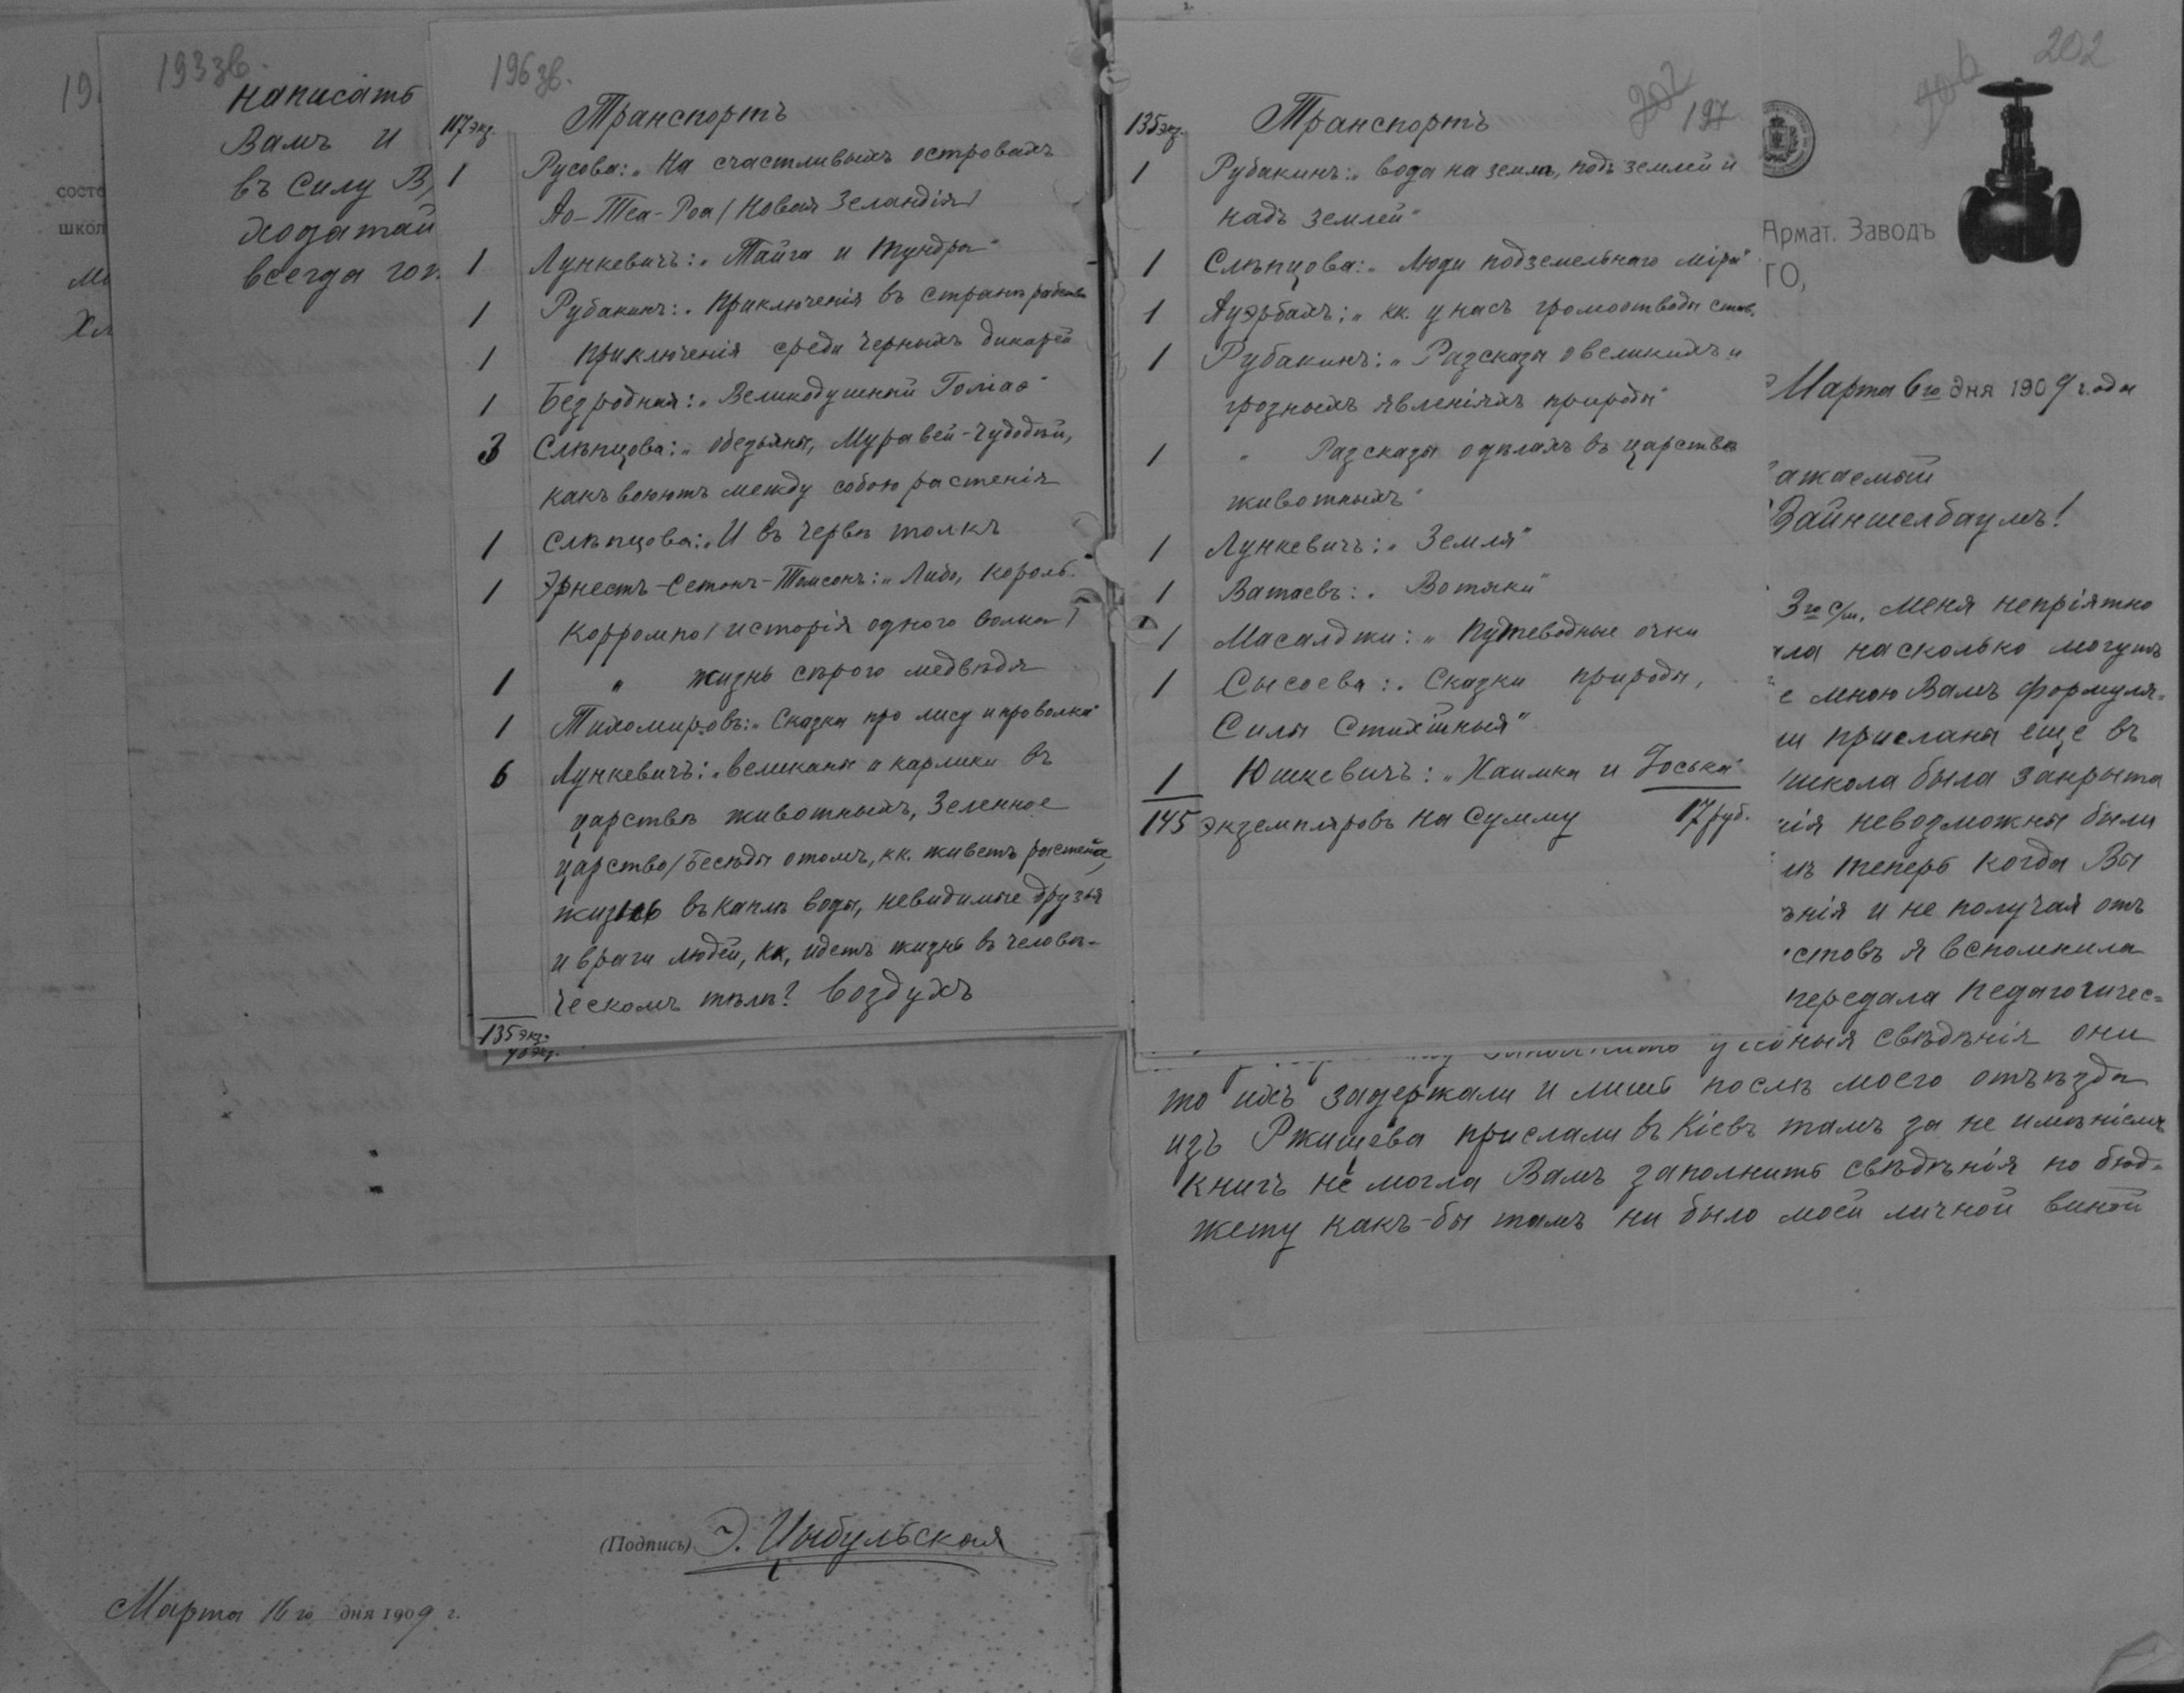 193 зв.
написать
Вамъ и
въ силу В
ходатай
всегда гот
19
состо
школ
Хл
196 зв.
117 экз. Транспортъ
1 Русова: „На счастливыхъ островахъ
Ао-Теа-Роа (Новая Зеландія)
1 Лункевичъ: „Тайга и тундра"
1 Рубакинъ: „Приключенія въ странѣ рабства
1 Приключенія среди черныхъ дикарей
1 Безродная: „Великодушный Голіаѳ"
3 Слѣпцова: „Обезьяны, Муравей-Чудодѣй,
какъ воюютъ между собою растенія
1 Слѣпцова: „И въ червѣ толкъ
1 Эрнестъ-Сетонъ-Томсонъ: „Лобо, король.
Корромпо (исторія одного волка)
1 „ жизнь сѣрого медвѣдя
1 Тихомировъ: „Сказка про лису и про волка"
6 Лункевичъ: „великаны и карлики въ
царствѣ животныхъ, Зеленное
царство (Бесѣды о томъ, кк. живетъ растеніе,
жизнь въ каплѣ воды, невидимые друзья
и враги людей, кк, идетъ жизнь въ человѣ-
ческомъ тѣлѣ? Воздухъ
135 экз.
(Подпись) Э. Цыбульская
Марта 16 го дня 1909 г.
202 197
135 экз. Транспортъ
1 Рубакинъ: „вода на землѣ, подъ землей и
надъ землей"
1 Слѣпцова: „Люди подземельнаго міра"
1 Ауэрбахъ: „кк. у насъ громоотводы став.
1 Рубакинъ: „Разсказы о великихъ и
грозныхъ явленіяхъ природы"
1 „ Разсказы о дѣлахъ въ царствѣ
животныхъ"
1 Лункевичъ: „Земля"
1 Ватаевъ: „Вотяки"
1 Масалджи: „Путеводные очки
1 Сысоева: „Сказки природы,
Силы Стихійныя"
1 Юшкевичъ: „Хаимка и Іоська"
145 экземпляровъ на сумму 17 руб.
202
Армат. Заводъ
ГО,
Марта 6го дня 1909 года
ажаемый
Вайншелбаумъ!
3го с/м. меня непріятно
ала насколько могутъ
е мною Вамъ формуля-
и присланы еще въ
школа была закрыта
ія невозможны были
мъ теперь когда Вы
ѣнія и не получая отъ
стовъ я вспомнила
передала Педагогичес=
свѣдѣнія они
то ихъ задержали и лишь послѣ моего отъѣзда
изъ Ржищева прислали въ Кіевъ тамъ за не имѣніемъ
книгъ не могла Вамъ заполнить свѣдѣнія по бюд-
жету какъ-бы тамъ ни было моей личной виной